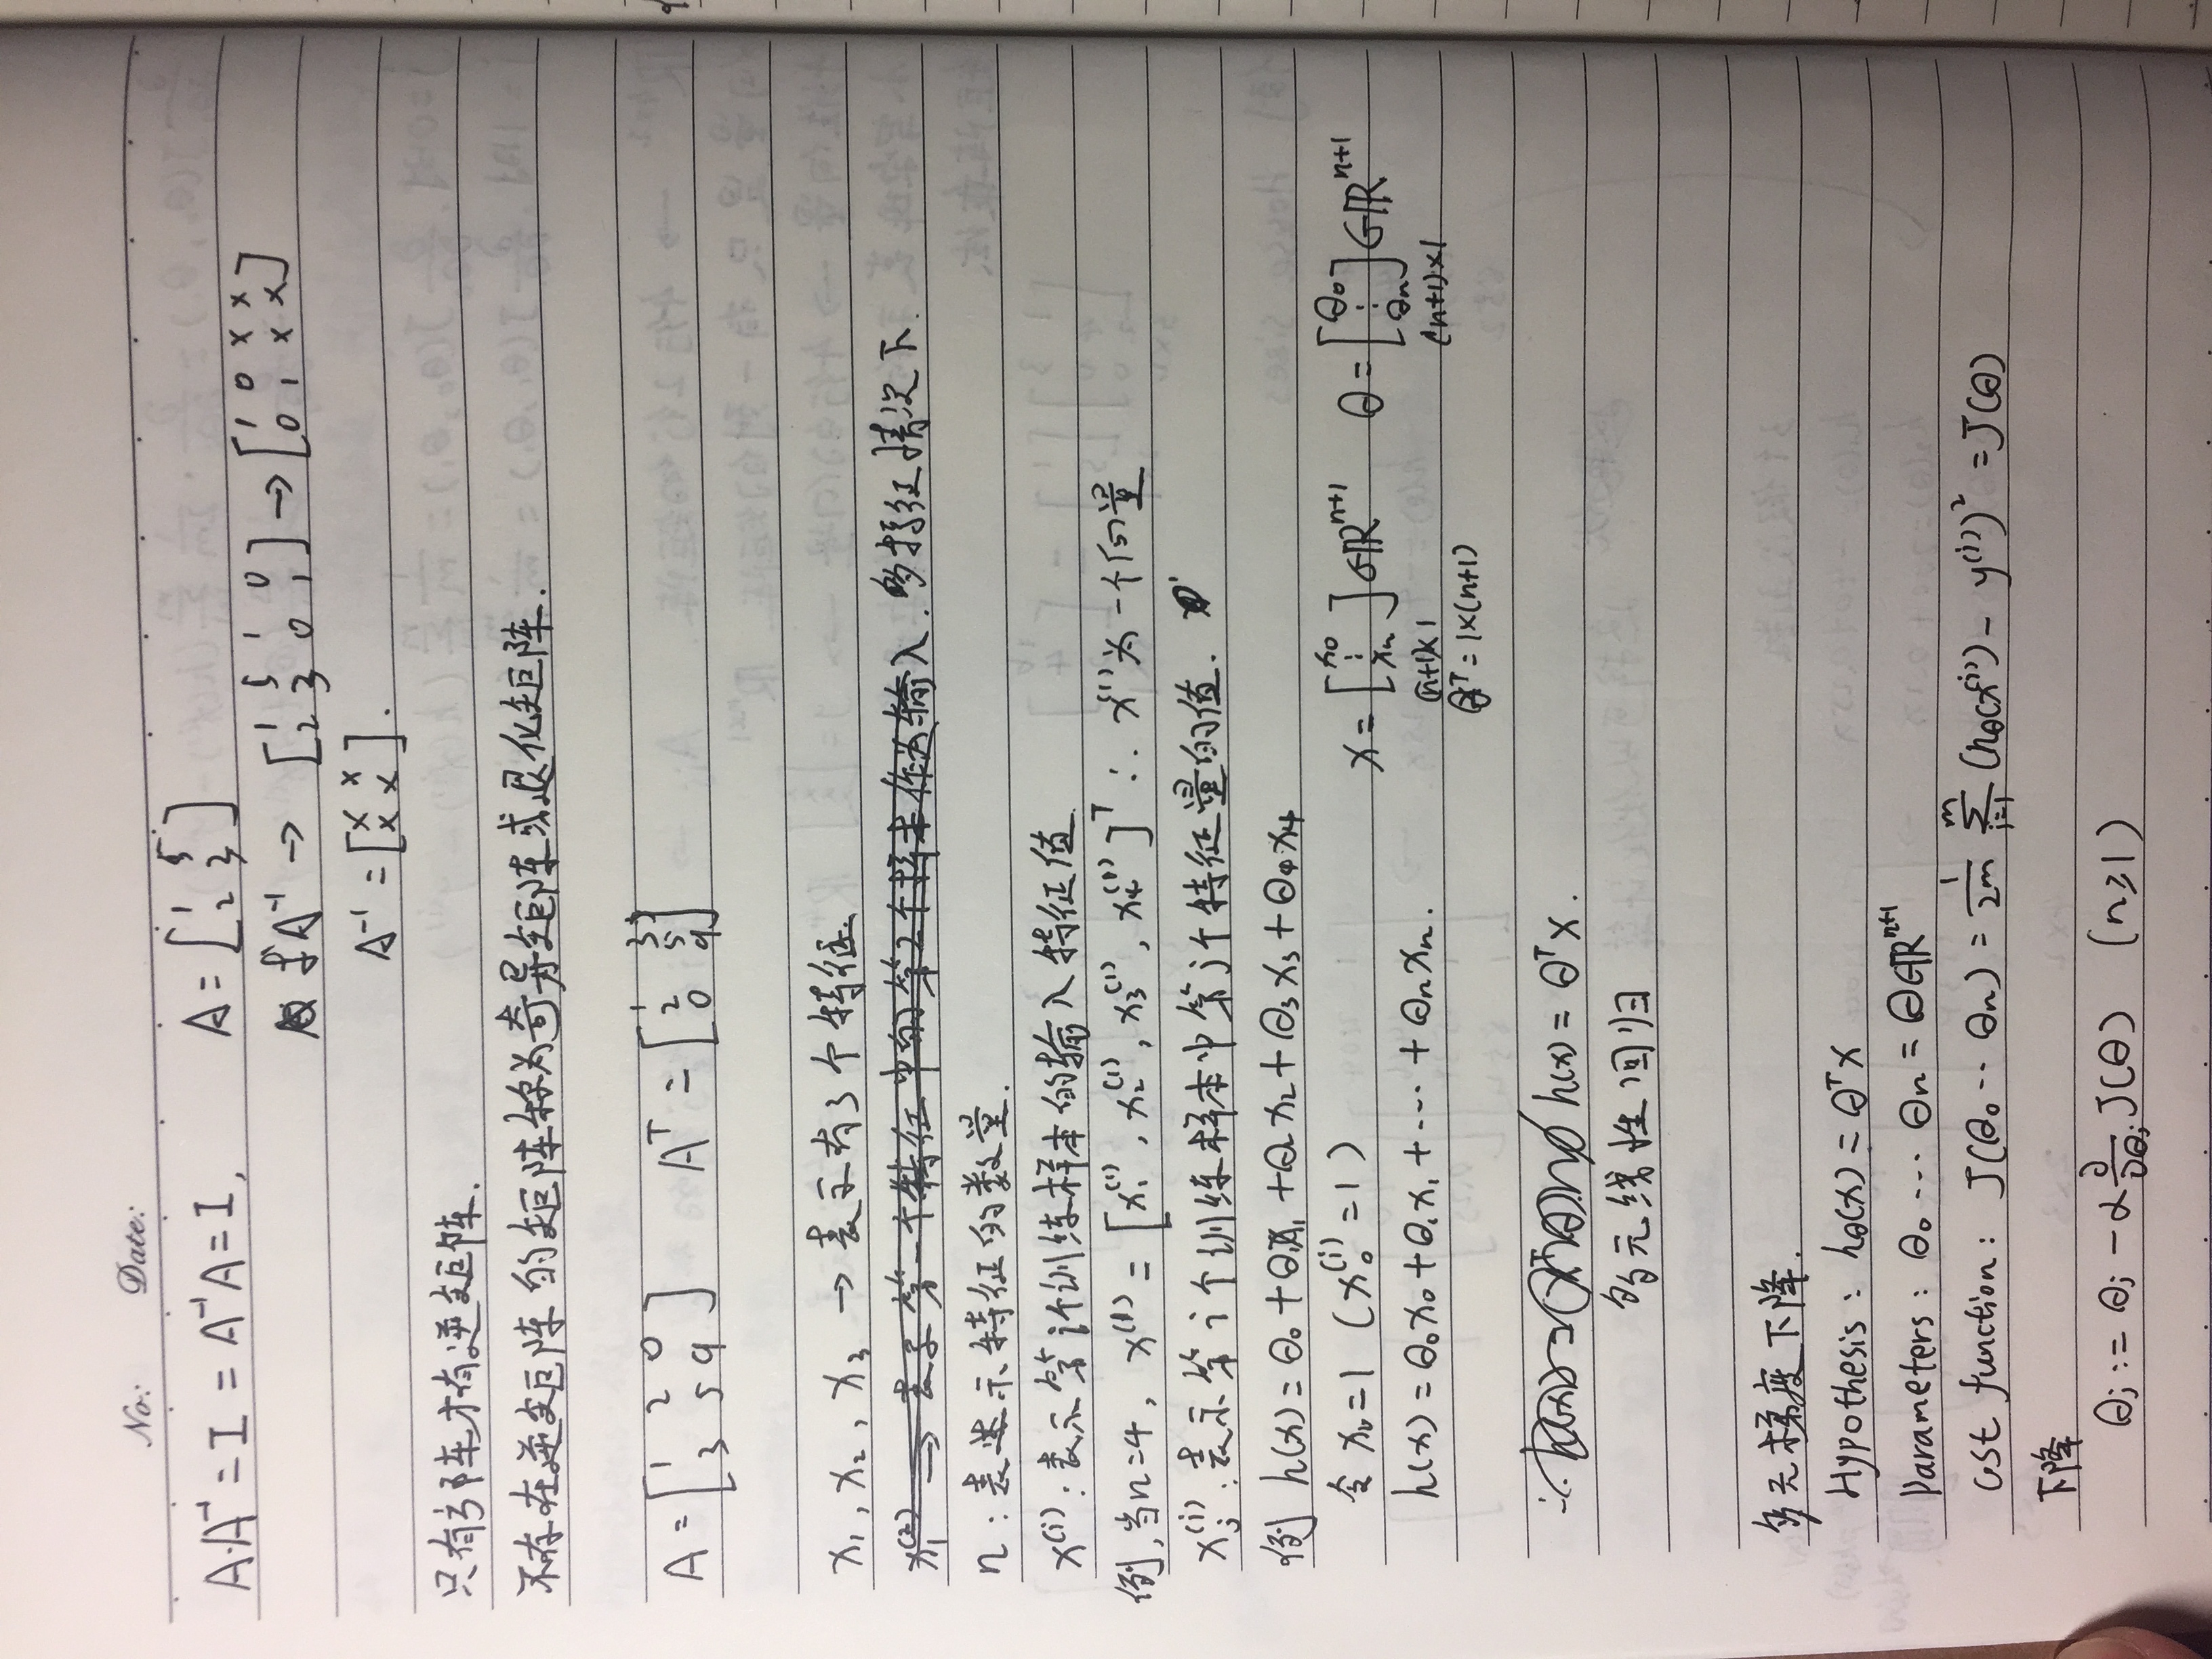 No: Date:
A·A⁻¹ = I = A⁻¹A = I, A = [1 5; 2 3]
求A⁻¹ → [1 5 1 0; 2 3 0 1] → [1 0 x x; 0 1 x x]
A⁻¹ = [x x; x x].
只有方阵才有逆矩阵.
不存在逆矩阵的矩阵称为奇异矩阵或退化矩阵.
A = [1 2 0; 3 5 9] Aᵀ = [1 3; 2 5; 0 9]
x₁, x₂, x₃ → 表示有3个特征.
x₁⁽²⁾ → 表示第一个特征中的第2个样本作为输入. 多特征情况下.
n: 表示特征的数量.
x⁽ⁱ⁾: 表示第i个训练样本的输入特征值.
例,当n=4, x⁽¹⁾ = [x₁⁽¹⁾, x₂⁽¹⁾, x₃⁽¹⁾, x₄⁽¹⁾]ᵀ ∴ x⁽¹⁾为一个向量
xⱼ⁽ⁱ⁾: 表示第i个训练样本中第j个特征量的值.
例 h(x) = θ₀ + θ₁x₁ + θ₂x₂ + θ₃x₃ + θ₄x₄
令 x₀=1 (x₀⁽ⁱ⁾=1) x = [x₀ ⋮ xₙ] ∈ℝⁿ⁺¹ θ = [θ₀ ⋮ θₙ] ∈ℝⁿ⁺¹
h(x) = θ₀x₀ + θ₁x₁ + ··· + θₙxₙ. (n+1)×1 (n+1)×1
θᵀ = 1×(n+1)
∴ h(x) = θᵀx.
多元线性回归
多元梯度下降.
Hypothesis: hθ(x) = θᵀx
Parameters: θ₀ ··· θₙ = θ∈ℝⁿ⁺¹
cost function: J(θ₀ ·· θₙ) = 1/2m Σᵢ₌₁ᵐ (hθ(x⁽ⁱ⁾) − y⁽ⁱ⁾)² = J(θ)
下降
θⱼ := θⱼ − α ∂/∂θⱼ J(θ) (n≥1)